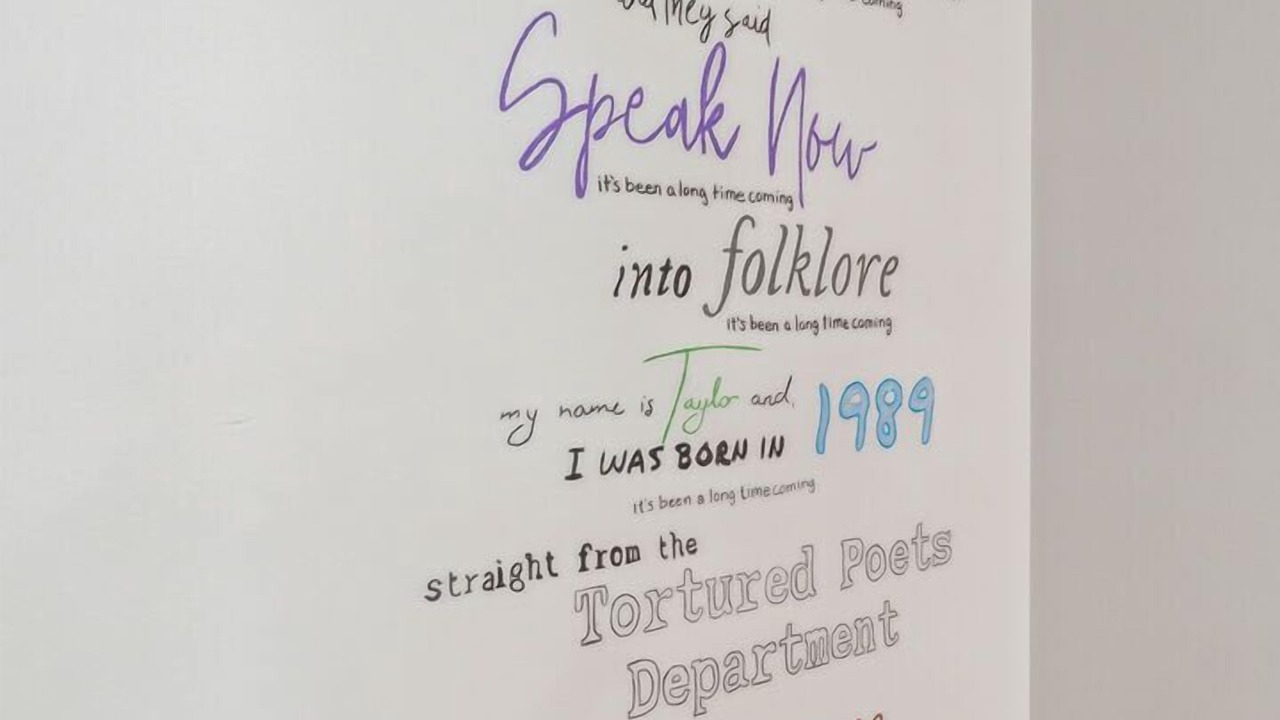 coming
they said
Speak Now
it's been a long time coming
into folklore
it's been a long time coming
my name is Taylor and,
I WAS BORN IN 1989
it's been a long time coming
straight from the
Tortured Poets
Department